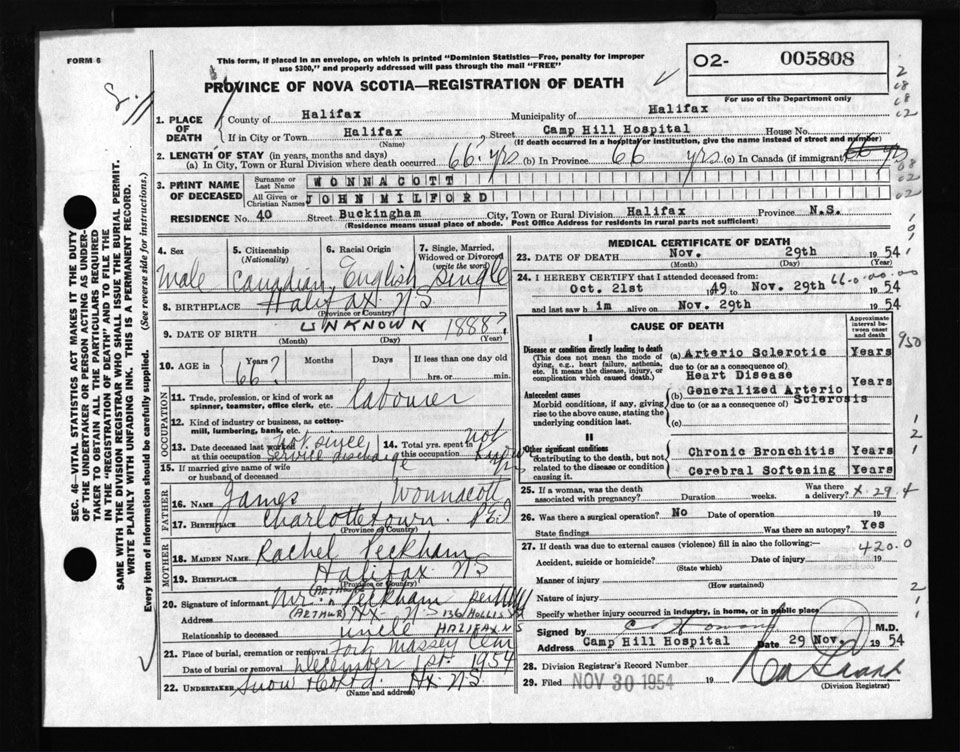 FORM 6
This form, if placed in an envelope, on which is printed "Dominion Statistics—Free, penalty for improper
use $300," and properly addressed will pass through the mail "FREE"
O2- 005808
For use of the Department only
PROVINCE OF NOVA SCOTIA—REGISTRATION OF DEATH
1. PLACE OF DEATH
County of Halifax Municipality of Halifax
If in City or Town Halifax Street Camp Hill Hospital House No.
(Name) (If death occurred in a hospital or institution, give the name instead of street and number)
2. LENGTH OF STAY (in years, months and days)
(a) In City, Town or Rural Division where death occurred 66? yrs (b) In Province 66 yrs (c) In Canada (if immigrant) 66 yrs
3. PRINT NAME OF DECEASED
Surname or Last Name WONNACOTT
All Given or Christian Names JOHN MILFORD
RESIDENCE No. 40 Street Buckingham City, Town or Rural Division Halifax Province N.S.
(Residence means usual place of abode. Post Office Address for residents in rural parts not sufficient)
4. Sex Male
5. Citizenship (Nationality) Canadian
6. Racial Origin English
7. Single, Married, Widowed or Divorced (write the word) Single
8. BIRTHPLACE Halifax NS
(Province or Country)
9. DATE OF BIRTH UNKNOWN 1888?
(Month) (Day) (Year)
10. AGE in Years Months Days If less than one day old
66? hrs. or min.
OCCUPATION
11. Trade, profession, or kind of work as
spinner, teamster, office clerk, etc. labourer
12. Kind of industry or business, as cotton-
mill, lumbering, bank, etc.
13. Date deceased last worked
at this occupation Not since service discharge
14. Total yrs. spent in
this occupation Not
15. If married give name of wife
or husband of deceased
FATHER
16. NAME James Wonnacott
17. BIRTHPLACE Charlottetown PEI
(Province or Country)
MOTHER
18. MAIDEN NAME Rachel Peckham
19. BIRTHPLACE Halifax NS
(Province or Country)
20. Signature of informant Mr. Peckham
(ARTHUR)
Address (ARTHUR) Hx. N.S. 136 HOLLIS ST
Relationship to deceased uncle HALIFAX NS
21. Place of burial, cremation or removal Fort Massey Cem
Date of burial or removal December 1st 1954
22. UNDERTAKER Snow & Co Ltd. Hx. N.S.
(Name and address)
MEDICAL CERTIFICATE OF DEATH
23. DATE OF DEATH Nov. 29th 1954
(Month) (Day) (Year)
24. I HEREBY CERTIFY that I attended deceased from:
Oct. 21st 1949 to Nov. 29th 1954
and last saw him alive on Nov. 29th 1954
66-0 00-00
CAUSE OF DEATH
Approximate interval between onset and death
I
Disease or condition directly leading to death
(This does not mean the mode of
dying, e.g., heart failure, asthenia,
etc. It means the disease, injury, or
complication which caused death.)
(a) Arterio Sclerotic Years
due to (or as a consequence of)
Heart Disease
Antecedent causes
Morbid conditions, if any, giving
rise to the above cause, stating the
underlying condition last.
(b) Generalized Arterio Years
due to (or as a consequence of)
Sclerosis
II
Other significant conditions
contributing to the death, but not
related to the disease or condition
causing it.
Chronic Bronchitis Years
Cerebral Softening Years
950
25. If a woman, was the death
associated with pregnancy? Duration weeks. Was there a delivery?
26. Was there a surgical operation? No Date of operation 19
State findings Was there an autopsy? Yes
27. If death was due to external causes (violence) fill in also the following:— 420.0
Accident, suicide or homicide? Date of injury 19
(State which)
Manner of injury
(How sustained)
Nature of injury
Specify whether injury occurred in industry, in home, or in public place
Signed by M.D.
Address Camp Hill Hospital Date 29 Nov. 1954
28. Division Registrar's Record Number
29. Filed NOV 30 1954 19
(Division Registrar)
SEC. 46—VITAL STATISTICS ACT MAKES IT THE DUTY
OF THE UNDERTAKER OR PERSON ACTING AS UNDER-
TAKER TO OBTAIN ALL THE PARTICULARS REQUIRED
IN THE "REGISTRATION OF DEATH" AND TO FILE THE
SAME WITH THE DIVISION REGISTRAR WHO SHALL ISSUE THE BURIAL PERMIT.
WRITE PLAINLY WITH UNFADING INK. THIS IS A PERMANENT RECORD.
Every item of information should be carefully supplied. (See reverse side for instructions.)